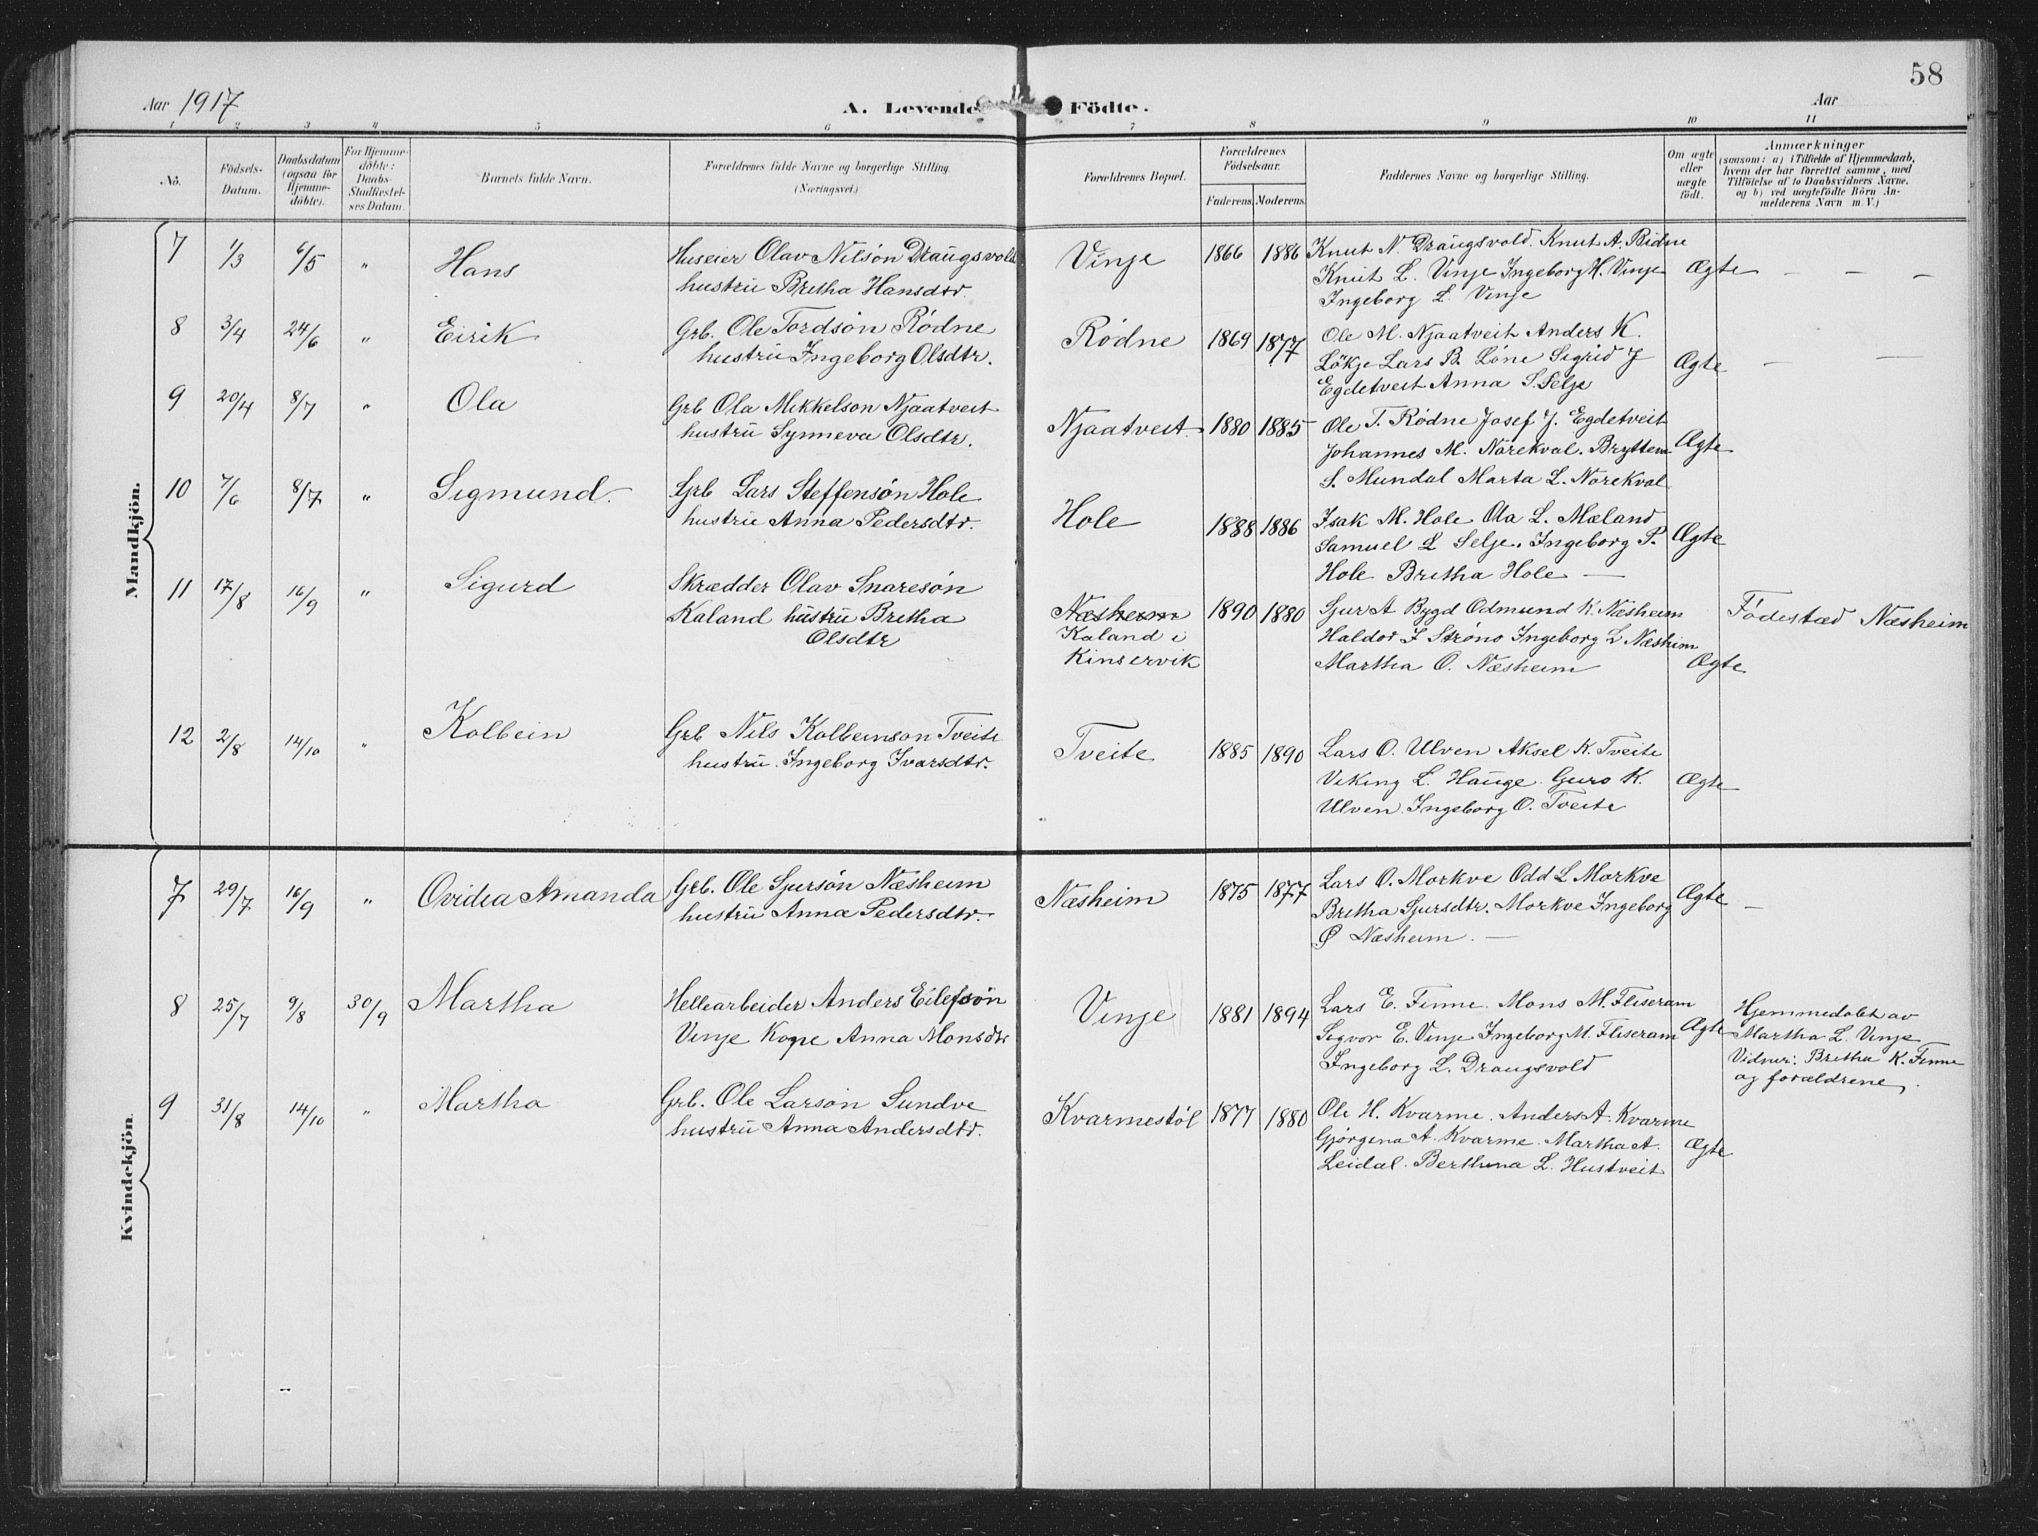 58
Aar 1917
A. Levende Födte.
Aar
1 2 3 4 5 6 7 8 9 10 11
No.
Födsels-Datum.
Daabsdatum (ogsaa for Hjemmedöbte).
For Hjemmedöbte: Daabs-Stadfæstelses Datum.
Barnets fulde Navn.
Forældrenes fulde Navne og borgerlige Stilling (Næringsvei.)
Forældrenes Bopæl.
Forældrenes Födselsaar.
Faderens. Moderens.
Faddernes Navne og borgerlige Stilling.
Om ægte eller uægte födt.
Anmærkninger
(saasom: a) i Tilfælde af Hjemmedaab,
hvem der har forrettet samme, med
Tilföielse af to Daabsvidners Navne.
og b) ved uægtefödte Börn An-
melderens Navn m. V.)
Mandkjön.
7 1/3 6/5 " Hans Huseier Olav Nilsön Draugsvold Vinje 1866 1886 Knut N. Draugsvold. Knut A. Ridne
hustru Bretha Hansdtr. Knut L. Vinje Ingeborg H. Vinje Ægte — — —
Ingeborg L. Vinje
8 3/4 24/6 " Eirik Grb. Ole Tordsön Rödne Rödne 1869 1877 Ole M. Njaatveit Anders K.
hustru Ingeborg Olsdtr. Lökje Lars B. Löne Sigrid J Ægte — —
Egdetveit Anna S. Selje
9 20/4 8/7 " Ola Grb Ola Mikkelson Njaatveit Njaatveit 1880 1885 Ole T. Rödne Josef J. Egdetveit
hustru Synneva Olsdtr. Johannes M. Nörekval. Bryttem Ægte
S. Mundal Marta L. Nörekval
10 7/6 8/7 " Sigmund. Grb Lars Steffensön Hole Hole 1888 1886 Isak M. Hole Ola L. Mæland
hustru Anna Pedersdtr. Samuel L Selje. Ingeborg P. Ægte
Hole Bretha Hole —
11 17/8 16/9 " Sigurd Skrædder Olav Snaresön Næsheim 1890 1880 Sjur A Bygd Odmund K. Næsheim Födestæd Næsheim
Kaland hustru Bretha Kaland i Haldor J Ströno Ingeborg L Næsheim
Olsdtr Kinservik Martha O. Næsheim Ægte
12 2/8 14/10 " Kolbein Grb Nils Kolbeinson Tveite Tveite 1885 1890 Lars O. Ulven Aksel K. Tveite
hustru. Ingeborg Ivarsdtr. Viking L. Hauge Guro K. Ægte
Ulven. Ingeborg O. Tveite
Kvindekjön
7 29/7 16/9 " Ovidia Amanda Grb. Ole Sjursön Næsheim Næsheim 1875 1877 Lars O. Morkve Odd L. Morkve Ægte
hustru Anna Pedersdtr. Bretha Sjursdtr. Morkve Ingeborg —
O Næsheim. —
8 25/7 9/8 30/9 Martha Hellearbeider Anders Eilefsön Vinje 1881 1894 Lars E. Finne. Mons M. Fliseram Ægte Hjemmedöbt av
Vinje Kone Anna Monsdtr Sigvor E. Vinje Ingeborg M. Fliseram Martha L. Vinje
Ingeborg L. Draugsvold Vidner: Bretha K. Finne
og forældrene.
9 31/8 14/10 " Martha Grb. Ole Larsön Sundve Kvarmestöl 1877 1880 Ole H. Kvarme. Anders A. Kvarme
hustru Anna Andersdtr. Gjörgena A. Kvarme. Martha A. Ægte
Leidal. Berthina L. Hustveit